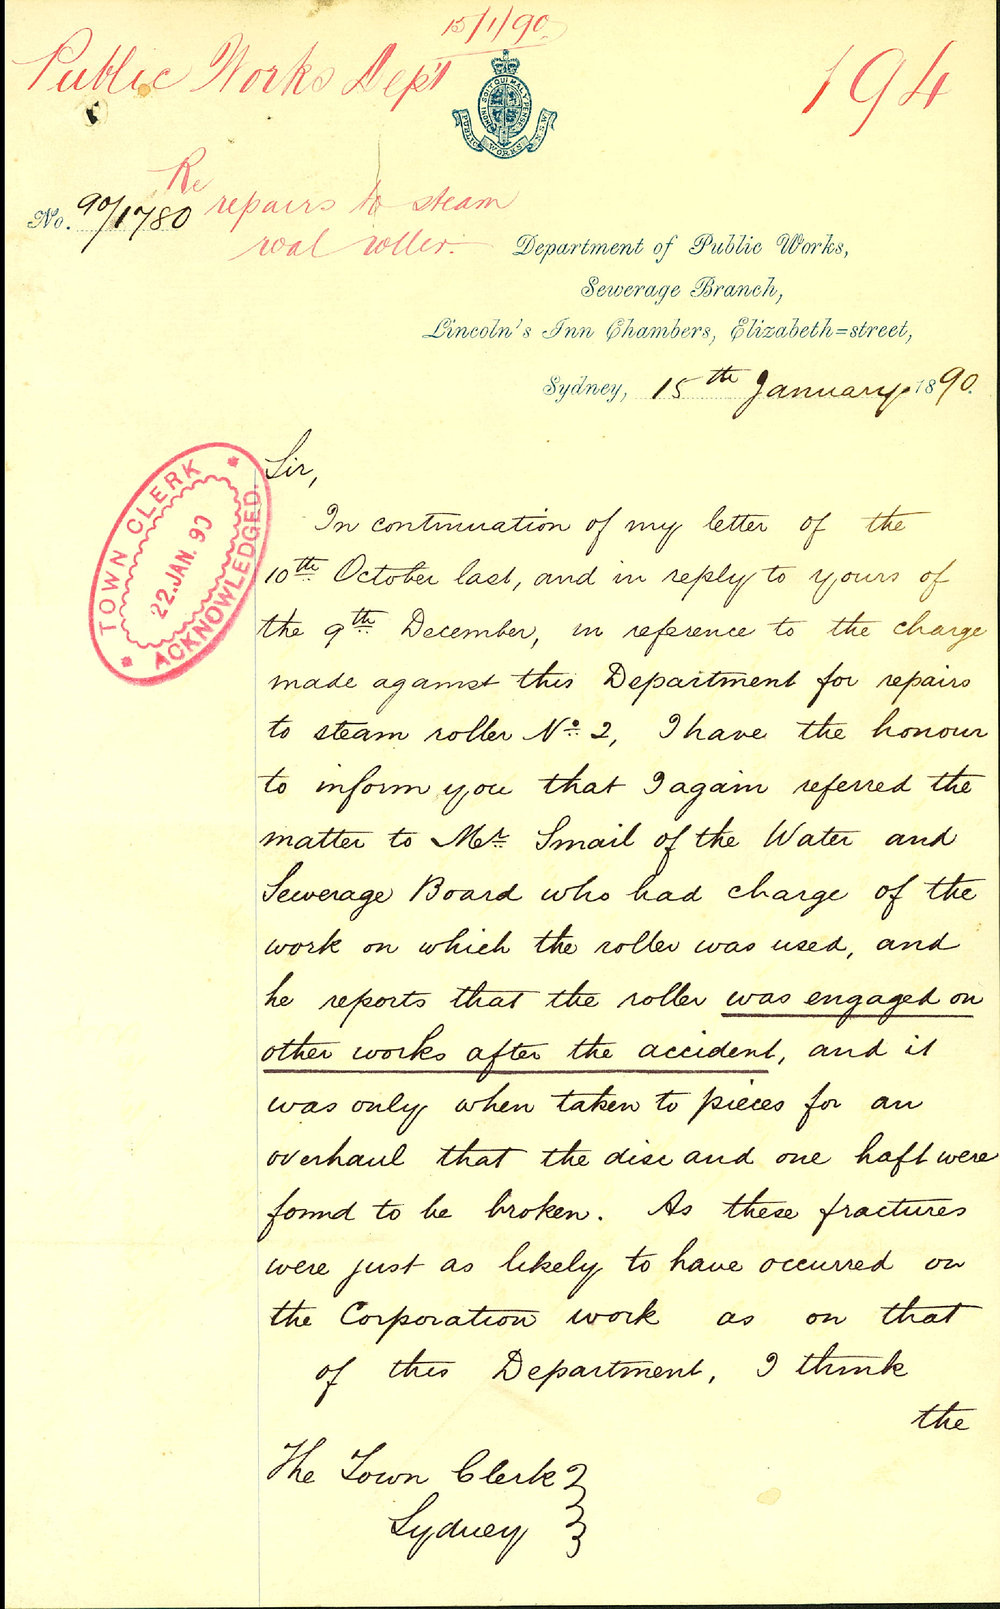 15/1/90
Public Works Dep't
194
HONI SOIT QUI MAL Y PENSE
PUBLIC WORKS N.S.W.
Re
repairs to steam
road roller.
No. 90/1780
Department of Public Works,
Sewerage Branch,
Lincoln's Inn Chambers, Elizabeth=street,
Sydney, 15th January 1890.
TOWN CLERK
22.JAN.90
ACKNOWLEDGED.
Sir,
In continuation of my letter of the
10th October last, and in reply to yours of
the 9th December, in reference to the charge
made against this Department for repairs
to steam roller No. 2, I have the honour
to inform you that I again referred the
matter to Mr. Smail of the Water and
Sewerage Board who had charge of the
work on which the roller was used, and
he reports that the roller was engaged on
other works after the accident, and it
was only when taken to pieces for an
overhaul that the disc and one haft were
found to be broken. As these fractures
were just as likely to have occurred on
the Corporation work as on that
of this Department, I think
the
The Town Clerk
Sydney